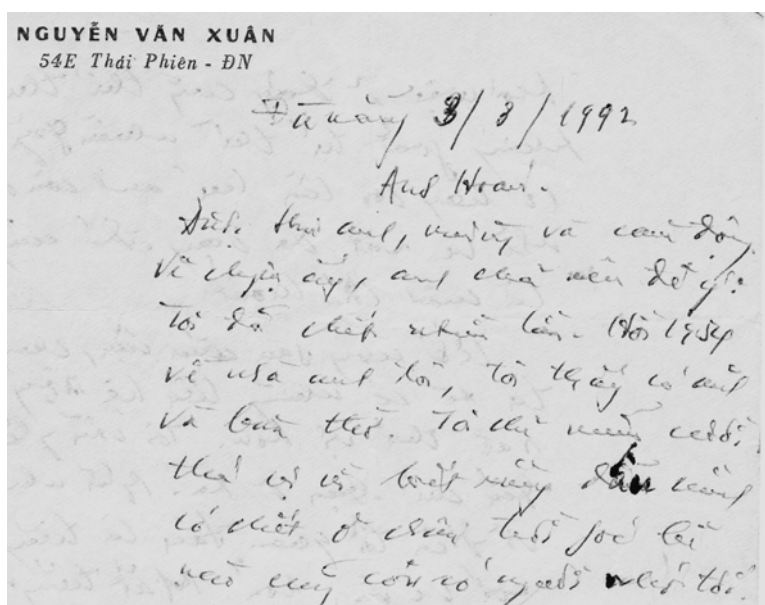 NGUYỄN VĂN XUÂN
54E Thái Phiên - ĐN
Đà nẵng 3/3/1992
Anh Hoàn.
Được thư anh, mừng và cảm động.
Về chuyện ấy, anh chớ nên để ý:
Tôi đã chết nhiều lần. Hồi 1954
về nhà anh tôi, tôi thấy có ảnh
và bàn thờ. Tôi chỉ mỉm cười
thú vị và biết rằng dẫu mình
có chết ở chân trời góc bể
nào cũng còn có người nhớ tới.